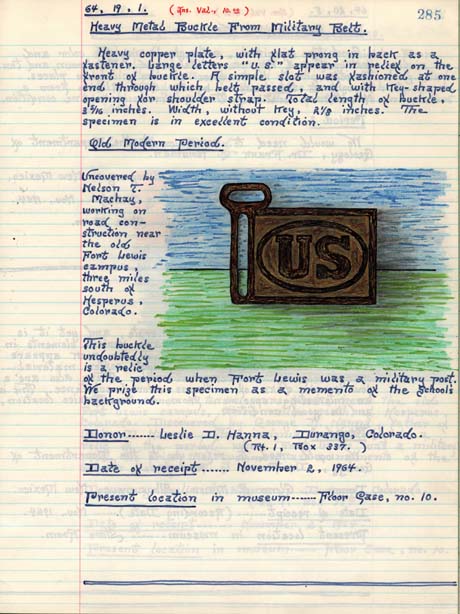 64, 19, 1. (Ins. Val., 10.00)
285
Heavy Metal Buckle From Military Belt.
Heavy copper plate, with flat prong in back as a
fastener. Large letters "U.S." appear in relief on the
front of buckle. A simple slot was fashioned at one
end through which belt passed, and with key-shaped
opening for shoulder strap. Total length of buckle,
inches. Width, without key, 2 1/8 inches. The
specimen is in excellent condition.
Old Modern Period.
Uncovered by
Nelson T.
Machay,
working on
road con-
struction near
the old
Fort Lewis
campus,
three miles
south of
Hesperus,
Colorado.
US
This buckle
undoubtedly
is a relic
of the period when Fort Lewis was a military post.
We prize this specimen as a memento of the school's
background.
Donor...... Leslie D. Hanna, Durango, Colorado.
(Rt. 1, Box 337.)
Date of receipt....... November 2, 1964.
Present location in museum...... Floor Case, no. 10.